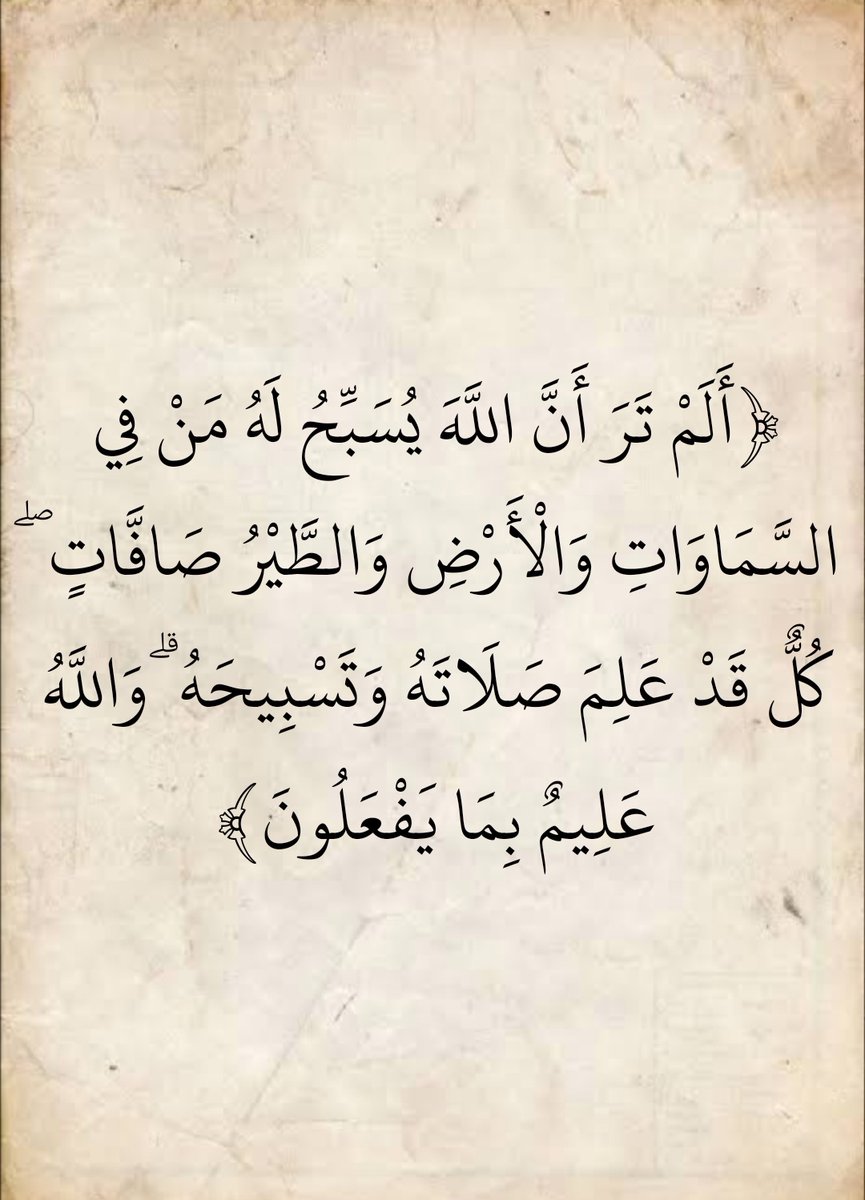 ﴿أَلَمْ تَرَ أَنَّ اللَّهَ يُسَبِّحُ لَهُ مَنْ فِي
السَّمَاوَاتِ وَالْأَرْضِ وَالطَّيْرُ صَافَّاتٍ ۖ
كُلٌّ قَدْ عَلِمَ صَلَاتَهُ وَتَسْبِيحَهُ ۗ وَاللَّهُ
عَلِيمٌ بِمَا يَفْعَلُونَ﴾